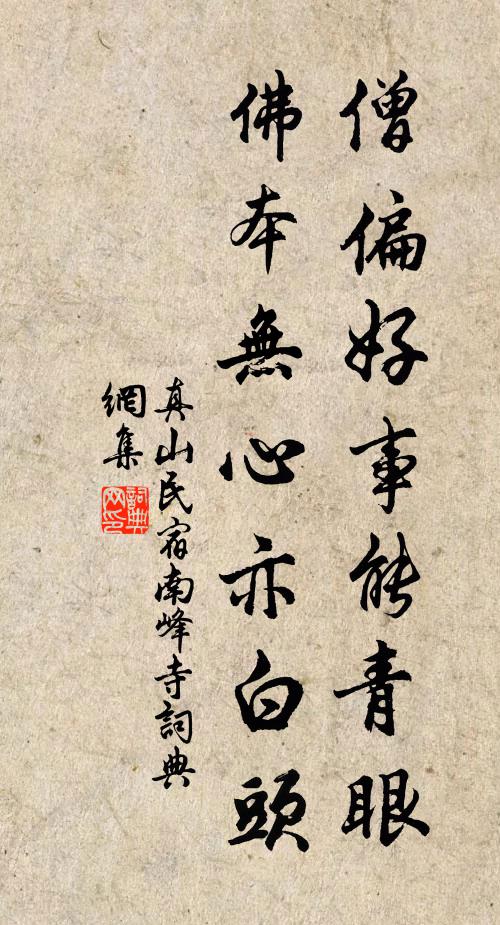 僧偏好事能青眼
佛本無心亦白頭
真山民宿南峰寺詞典
網集
詞典
网印